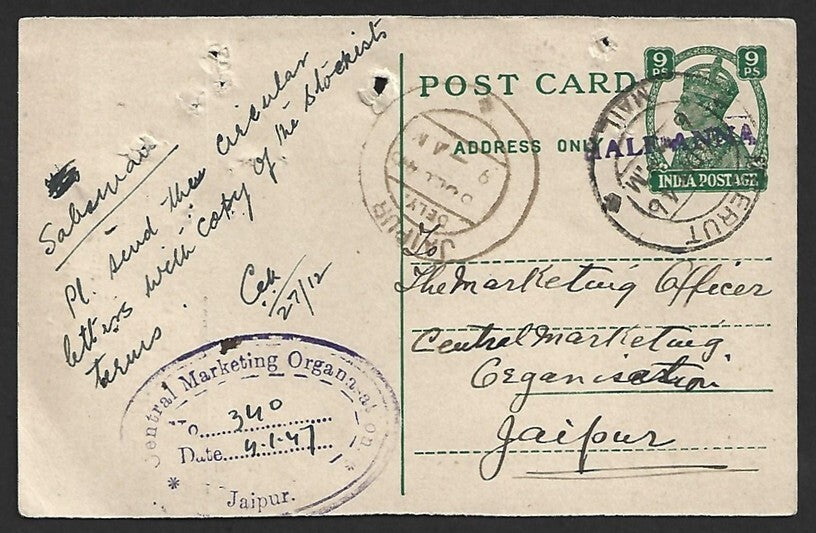 POST CARD
ADDRESS ONLY
9 PS 9 PS
HALF ANNA
INDIA POSTAGE
MEERUT
JAIPUR
DELY
To
The Marketing Officer
Central Marketing
Organisation
Jaipur
Pl. send the circular
letters with copy of the stockists
terms.
27/12
Central Marketing Organisation
No. 340
Date 4.1.47
Jaipur.